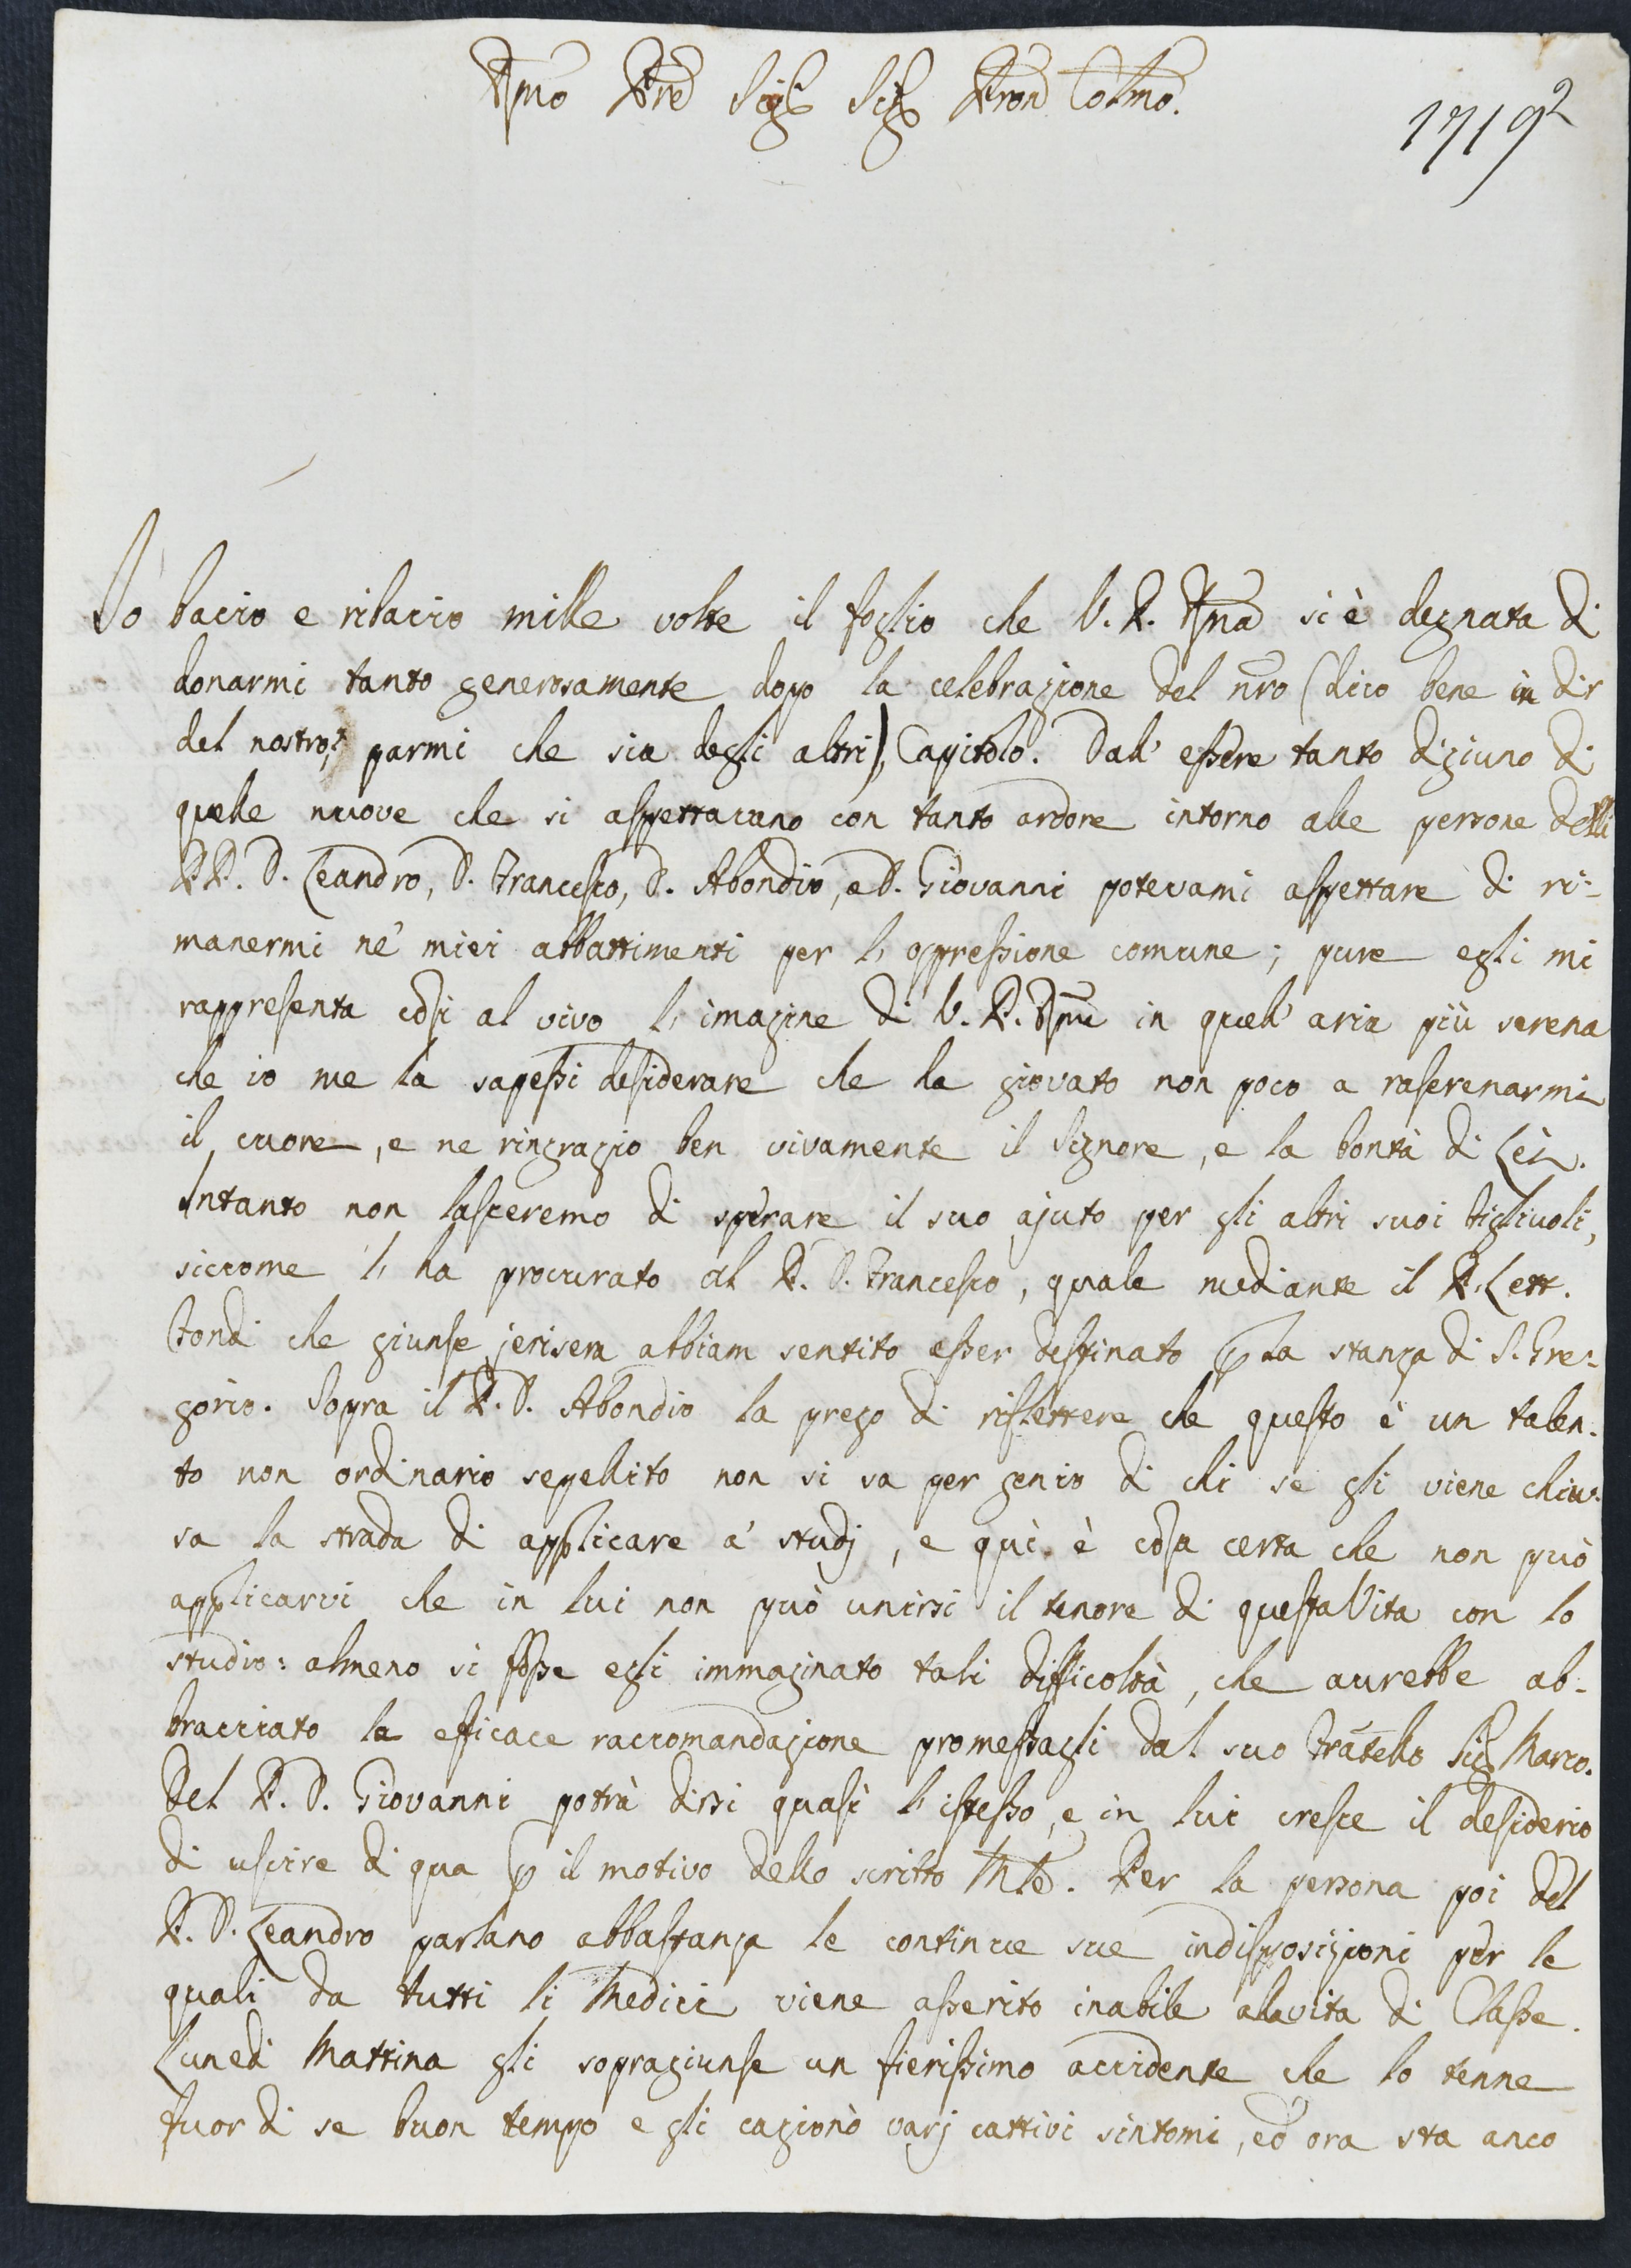 Rmo Pre Sigr Sigr Pron Colmo.
1719²
Io bacio e ribacio mille volte il foglio che V. P. Rma si è degnata di
donarmi tanto generosamente dopo la celebrazione del nro (dico bene in dir
del nostro, parmi che sia degli altri) Capitolo. Dall' essere tanto digiuno di
quelle nuove che si aspettavano con tanto ardore intorno alle persone delli
PP. D. Leandro, D. Francesco, D. Abondio, e D. Giovanni potevami aspettare di ri=
manermi ne' miei abbattimenti per l' oppressione comune; pure egli mi
rappresenta così al vivo l' imagine di V. P. Rma in quell' aria più serena
che io me la sapessi desiderare che ha giovato non poco a raserenarmi
il cuore, e ne ringrazio ben vivamente il Signore, e la bontà di Lei.
Intanto non lasceremo di sperare il suo ajuto per gli altri suoi figlivoli,
siccome l' ha procurato al P. D. Francesco, quale mediante il P. Lett.
Tondi che giunse jerisera abbiam sentito esser destinato p la stanza di S. Gre=
gorio. Sopra il P. D. Abondio la prego di riflettere che questo è un talen=
to non ordinario sepellito non si sa per genio di chi se gli viene chiu=
sa la strada di applicare a' studj, e quì è cosa certa che non può
applicarvi che in lui non può unirsi il tenore di questa Vita con lo
studio: almeno si fosse egli immaginato tali difficoltà, che avrebbe ab=
bracciato la efficace raccomandazione promessagli dal suo Fratello Sigr Marco.
Del P. D. Giovanni potrà dirsi quasi l' istesso, e in lui cresce il desiderio
di uscire di qua p il motivo dello scritto Mle. Per la persona poi del
P. D. Leandro parlano abbastanza le continue sue indisposizioni per le
quali da tutti li Medici viene asserito inabile alla vita di Classe.
Lunedi Mattina gli sopragiunse un fierissimo accidente che lo tenne
fuor di se buon tempo e gli cagionò varj cattivi sintomi, ed ora sta anco